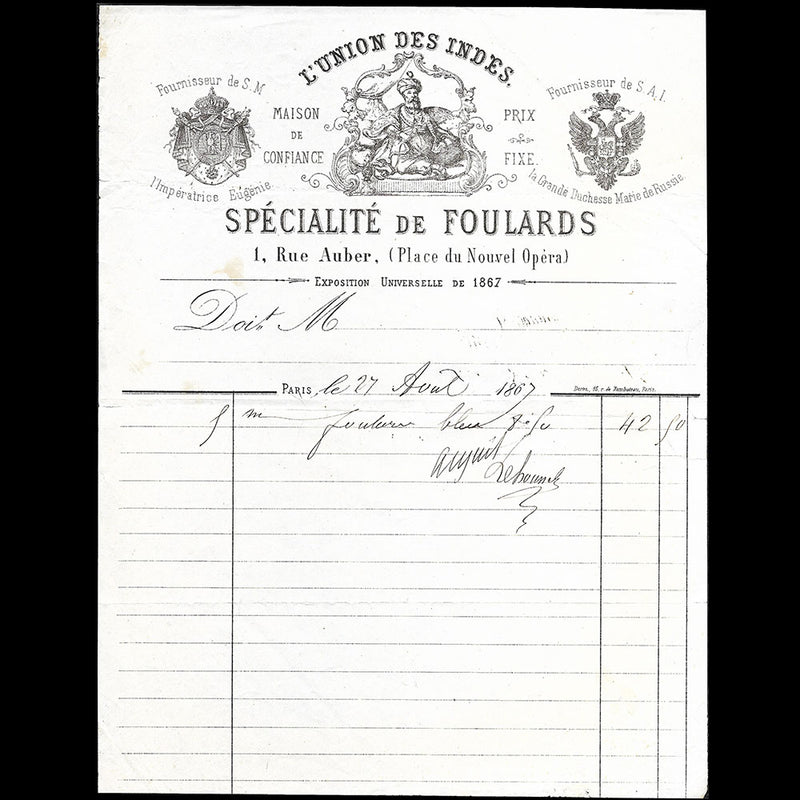 L'UNION DES INDES.
Fournisseur de S. M.
l'Impératrice Eugénie.
MAISON
DE
CONFIANCE
PRIX
FIXE.
Fournisseur de S. A. I.
la Grande Duchesse Marie de Russie
SPÉCIALITÉ DE FOULARDS
1, Rue Auber, (Place du Nouvel Opéra)
EXPOSITION UNIVERSELLE DE 1867
Doit M
PARIS, le 27 Aout 1867
5 m foulard bleu 8.50 42 50
acquit